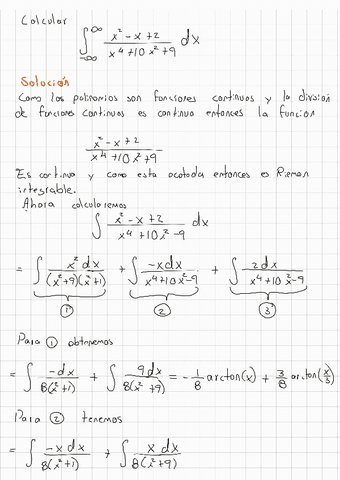 Calcular
∫_{-∞}^{∞} (x² - x + 2)/(x⁴ + 10x² + 9) dx
Solución
Como los polinomios son funciones continuas y la division
de funciones continuas es continua entonces la funcion
(x² - x + 2)/(x⁴ + 10x² + 9)
Es continua y como esta acotada entonces es Rieman
integrable.
Ahora calcularemos
∫ (x² - x + 2)/(x⁴ + 10x² - 9) dx
= ∫ x² dx/((x² + 9)(x² + 1)) + ∫ -x dx/(x⁴ + 10x² - 9) + ∫ 2 dx/(x⁴ + 10x² - 9)
① ② ③
Para ① obtenemos
= ∫ -dx/(8(x² + 1)) + ∫ 9 dx/(8(x² + 9)) = -1/8 arctan(x) + 3/8 arctan(x/3)
Para ② tenemos
= ∫ -x dx/(8(x² + 1)) + ∫ x dx/(8(x² + 9))